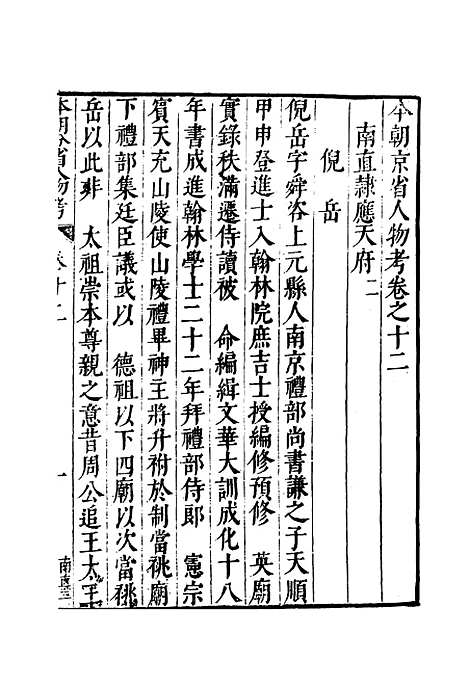 本朝京省人物考卷之十二
南直隷應天府二
倪岳
倪岳字舜咨上元縣人南京禮部尚書謙之子天順
甲申登進士入翰林院庶吉士授編修預修　英廟
實錄秩滿遷侍讀被　命編緝文華大訓成化十八
年書成進翰林學士二十二年拜禮部侍郎　憲宗
賓天充山陵使山陵禮畢神主將升祔於制當祧廟
下禮部集廷臣議或以　德祖以下四廟以次當祧
岳以此非　太祖崇本尊親之意昔周公追王太王
本朝分省人物考　卷十二　一　南直二